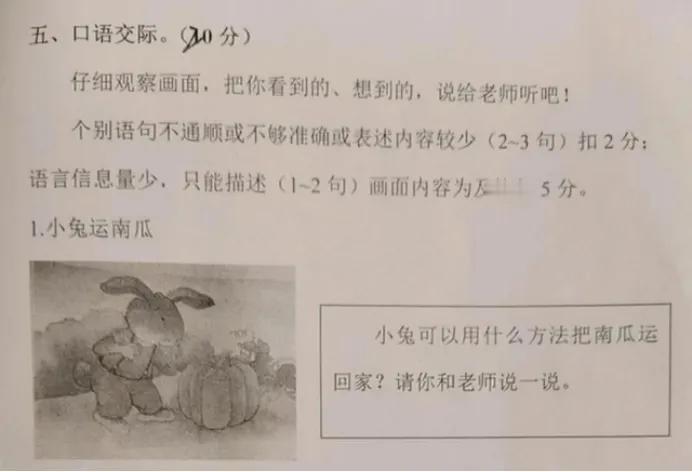 五、口语交际。(10分)
仔细观察画面，把你看到的、想到的，说给老师听吧！
个别语句不通顺或不够准确或表述内容较少（2~3 句）扣 2 分；
语言信息量少，只能描述（1~2 句）画面内容为 5 分。
1.小兔运南瓜
小兔可以用什么方法把南瓜运
回家？请你和老师说一说。